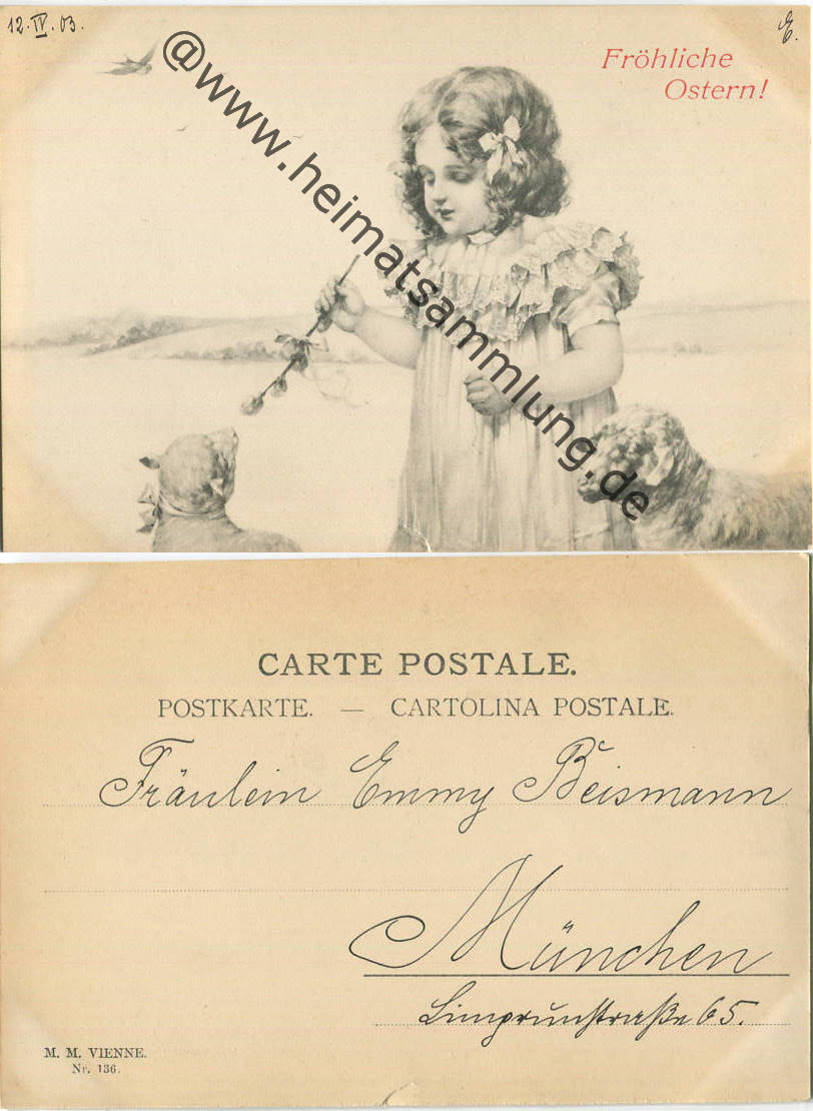 12. IV. 03.
E.
Fröhliche
Ostern!
@www.heimatsammlung.de
CARTE POSTALE.
POSTKARTE. — CARTOLINA POSTALE.
Fräulein Emmy Beismann
München
Limprunstraße 65.
M. M. VIENNE.
Nr. 136.